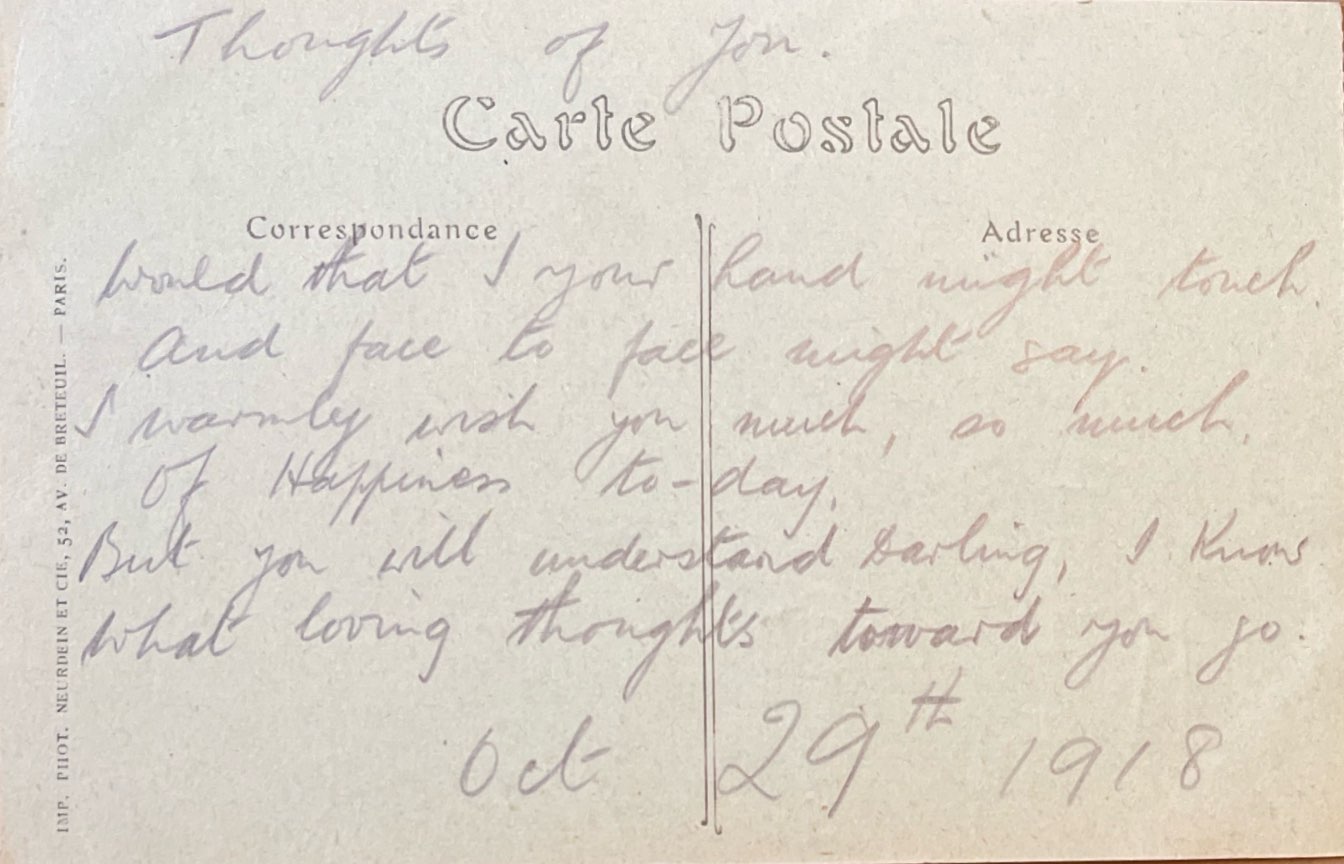 Thoughts of You.
Carte Postale
Correspondance
Adresse
Would that I your hand might touch.
And face to face might say.
I warmly wish you much, so much,
Of Happiness to-day,
But you will understand Darling, I Know
What loving thoughts toward you go.
Oct 29th 1918
IMP. PHOT. NEURDEIN ET CIE, 52, AV. DE BRETEUIL. — PARIS.